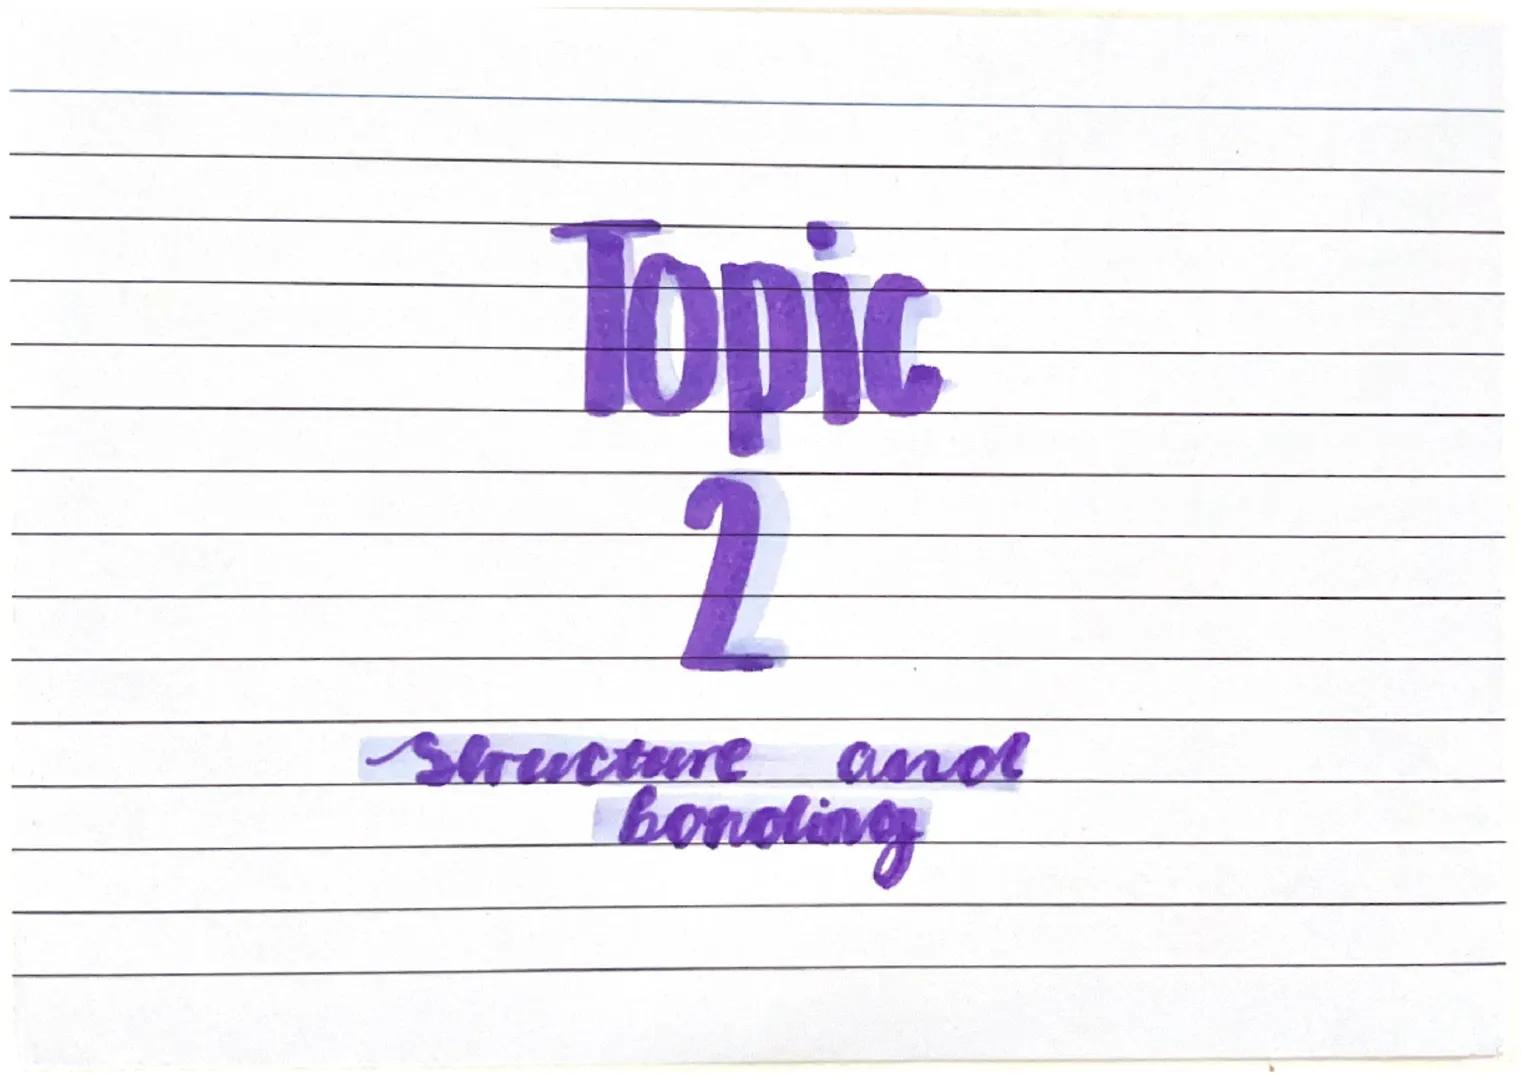 Topic
2
Structure and
bonding